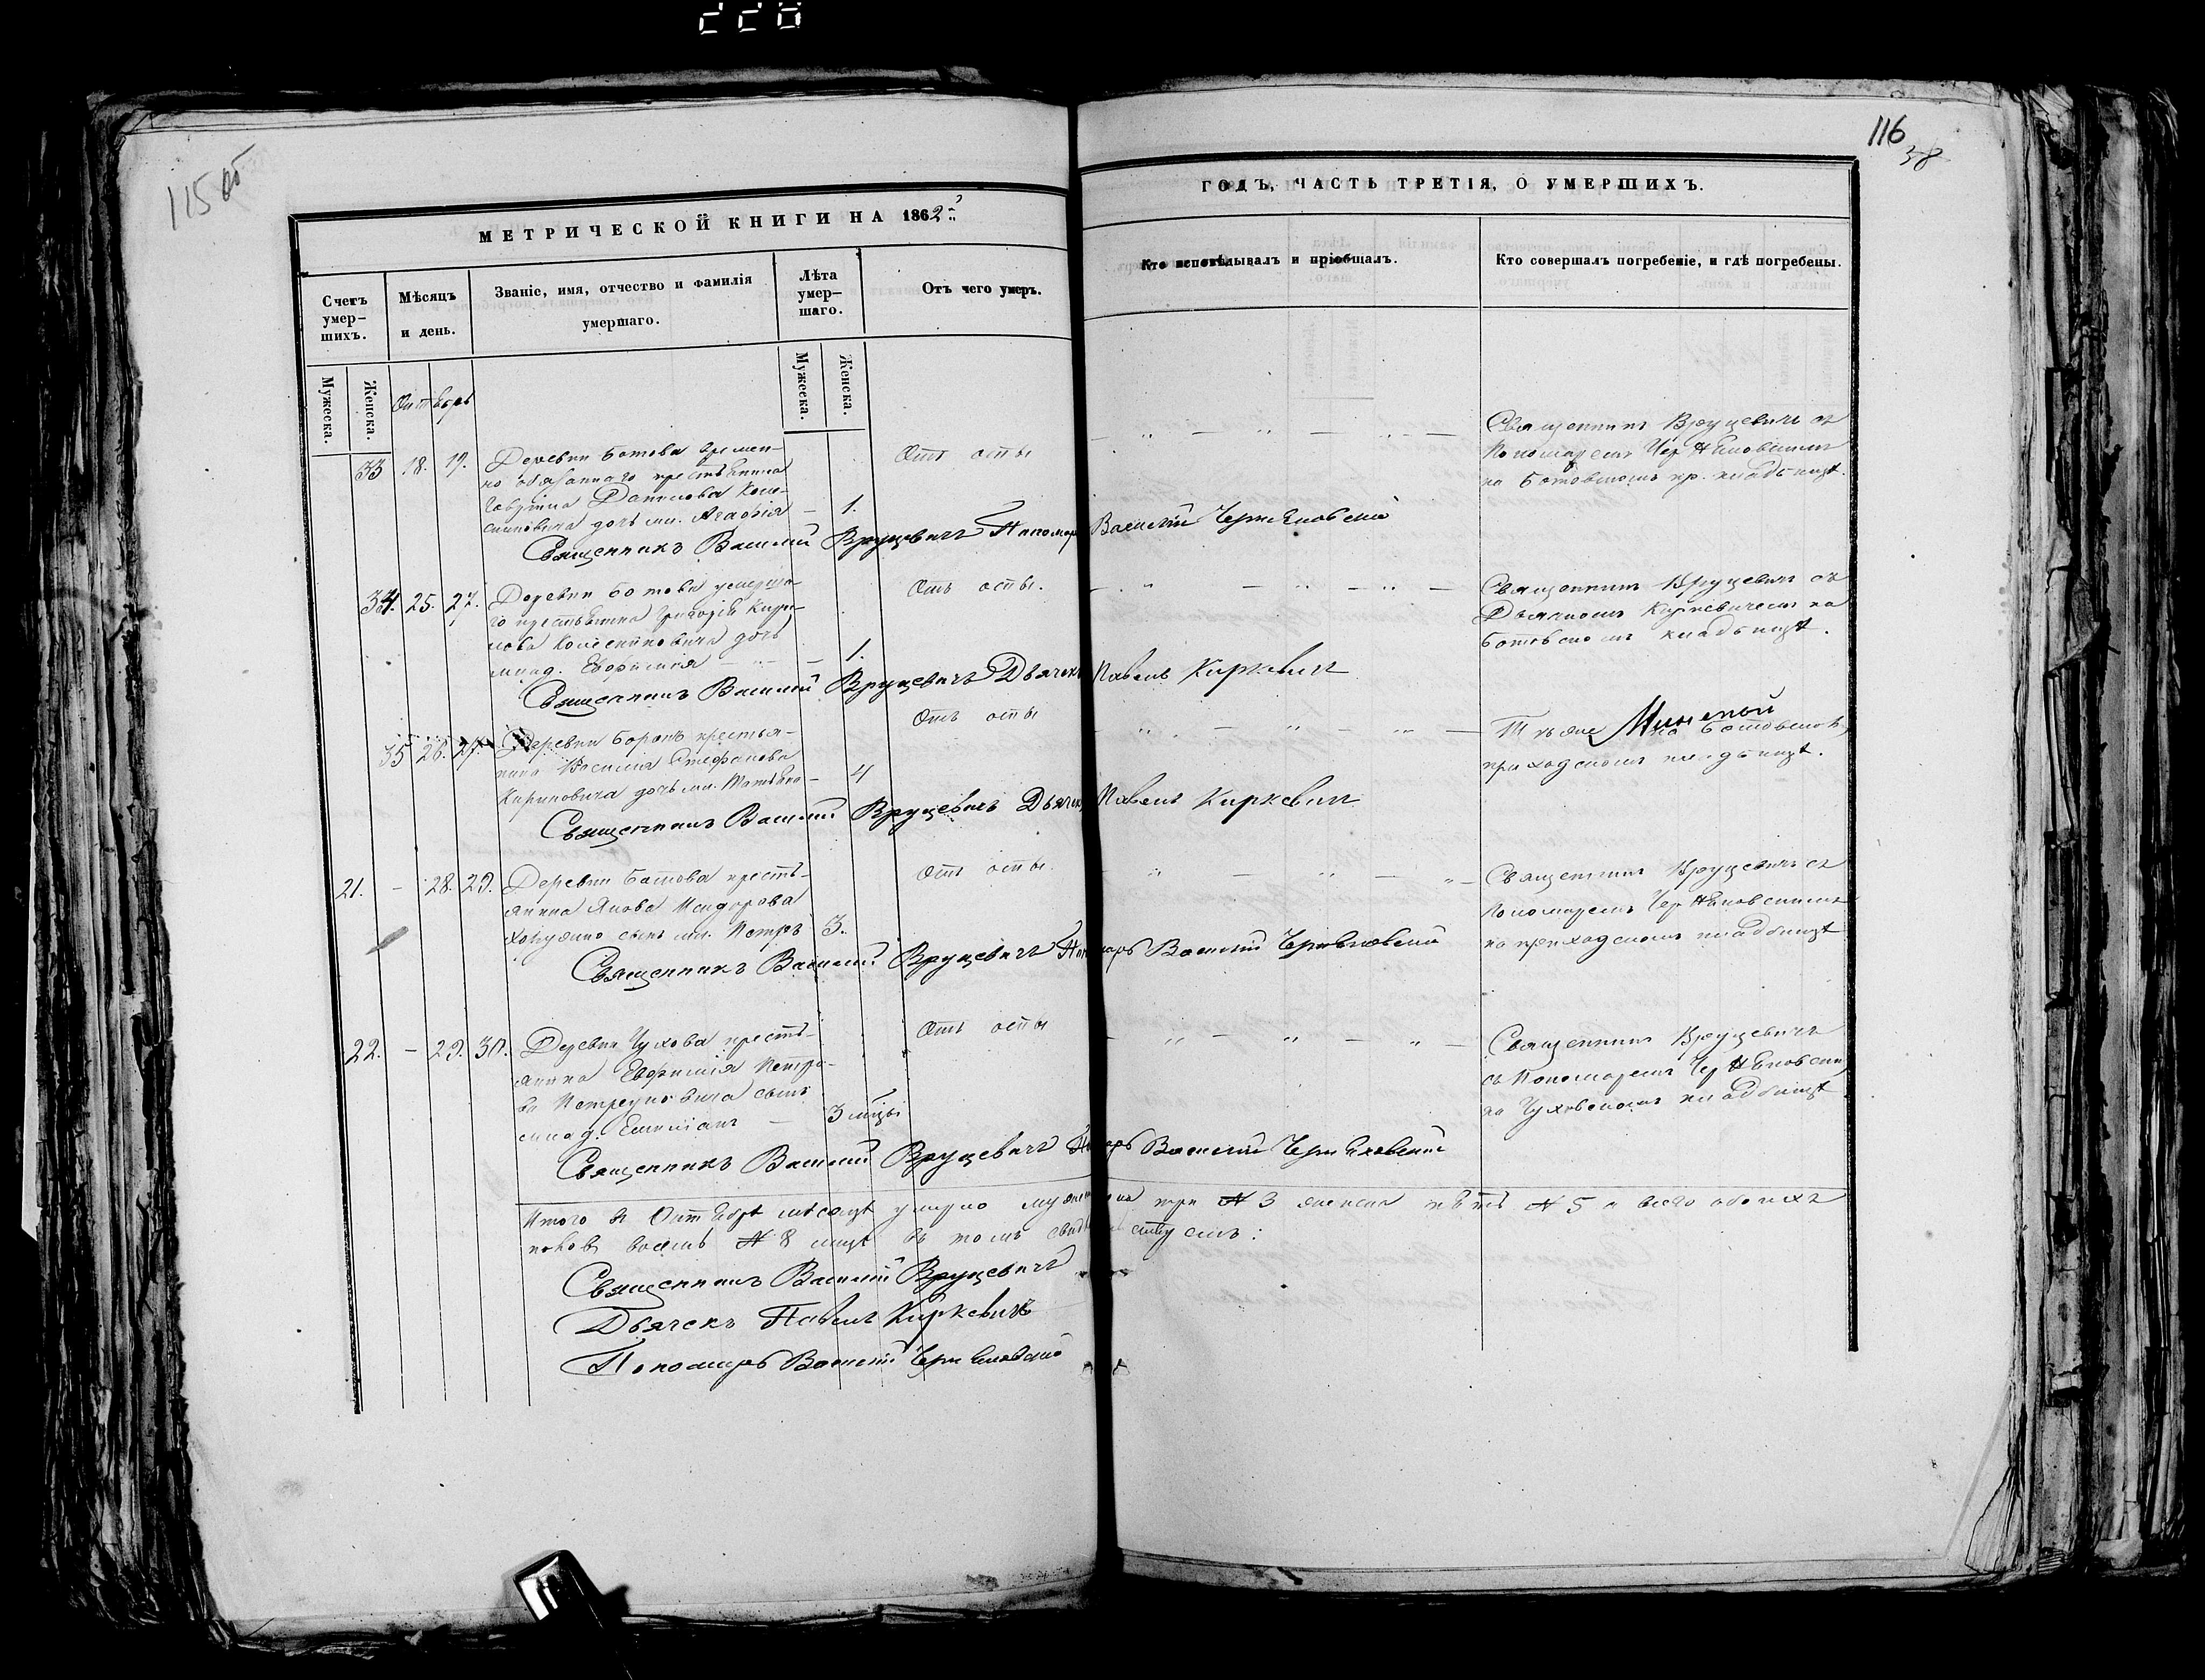 228
115 об
116
38
МЕТРИЧЕСКОЙ КНИГИ НА 1862
ГОДЪ, ЧАСТЬ ТРЕТІЯ, О УМЕРШИХЪ.
Счетъ умер-
шихъ.
Мѣсяцъ
и день.
Званіе, имя, отчество и фамилія
умершаго.
Лѣта
умер-
шаго.
Отъ чего умеръ.
Кто исповѣдывалъ и пріобщалъ.
Кто совершалъ погребеніе, и гдѣ погребены.
Мужеска.
Женска.
Мужеска.
Женска.
Октябрь
33 18. 19. Деревни Ботова времен-
но обязаннаго крестьянина
Гавріила Данилова
дочь мл. Агафія — 1.
Отъ оспы
Священникъ Вруцевичъ съ
Пономаремъ Черняковскимъ
на Ботовскомъ пр. кладбищѣ.
Священникъ Василій Вруцевичъ Пономарь Василій Черняковскій
34. 25. 27. Деревни Ботова
крестьянина Григорія
дочь
млад. Евфимія — 1.
Отъ оспы.
Священникъ Вруцевичъ съ
Дьячкомъ Киркевичемъ на
Ботовскомъ кладбищѣ.
Священникъ Василій Вруцевичъ Дьячекъ Павелъ Киркевичъ
35 26. 27. Деревни Боровъ крестья-
нина Василія Стефанова
Кириковича дочь мл. — 4
Отъ оспы
Тѣ же на Ботовскомъ
приходскомъ кладбищѣ.
Священникъ Василій Вруцевичъ Дьячекъ Павелъ Киркевичъ
21. — 28. 29. Деревни Ботова кресть-
янина Якова
сынъ мл. Петръ 3.
Отъ оспы.
Священникъ Вруцевичъ съ
Пономаремъ Черняковскимъ
на приходскомъ кладбищѣ
Священникъ Василій Вруцевичъ Пономарь Василій Черняковскій
22. — 29. 30. Деревни Чухова кресть-
янина Евфимія Петро-
ва сынъ
млад. Емиліанъ — 3 мѣсцы
Отъ оспы
Священникъ Вруцевичъ
съ Пономаремъ Черняковским
на Чуховскомъ кладбищѣ
Священникъ Василій Вруцевичъ Пономарь Василій Черняковскій
Итого въ Октябрѣ мѣсяцѣ умерло мужеска три № 3 женска пять № 5 а всего обоихъ
половъ восемь № 8 лицъ въ томъ свидѣтельствуемъ:
Священникъ Василій Вруцевичъ
Дьячекъ Павелъ Киркевичъ
Пономарь Василій Черняковскій